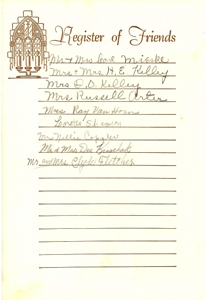 Register of Friends
Mr & Mrs Mieske
Mrs & Mrs H. E. Kelley
Mrs O. O. Kelley
Mrs Russell Arter
Mrs Ray Van Horn
Lenore
Mrs Nellie
Mr & Mrs Dee
Mr. and Mrs. Clyde Fletcher